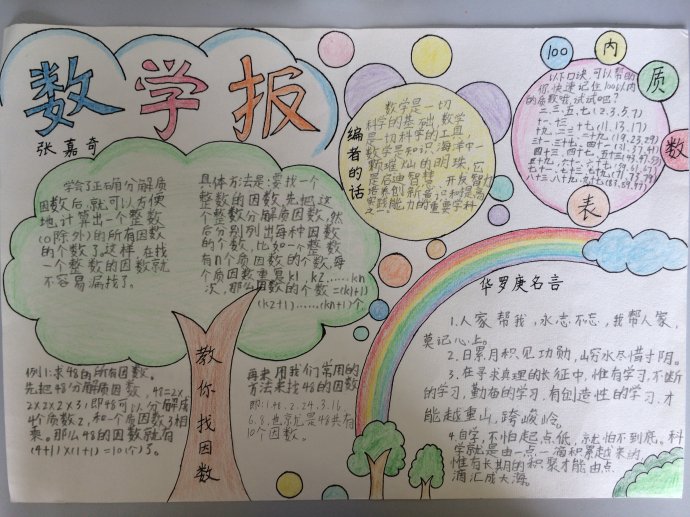 数学报
张嘉奇
学会了正确分解质
因数后,就可以方便
地计算出一个整数
(0除外)的所有因数
的个数了。这样在找
一个整数的因数就
不容易漏找了。
具体方法是:要找一个
整数的因数,先把这
个整数分解质因数,然
后分别列出每种因数
的个数,比如一个整数
有n个质因数的个数,每
个质因数重复k1,k2,……kn
次,那么因数的个数=(k1+1)
(k2+1)……(kn+1)个.
教你找因数
例1:求48的所有因数。
先把48分解质因数,48=2×
2×2×2×3,即48可以分解成
4个质数2,和一个质因数3相
乘。那么48的因数就有
(4+1)×(1+1)=10(个)。
再来用我们常用的
方法来找48的因数
10个因数。
编者的话
数学是一切
科学的基础,数学
是一切科学的工具,
数学是知识海洋中一
颗璀灿的明珠,它
是启迪智慧,开发智力
培养创新意识和提高
实践能力的重要学科
之一。
100内质数表
以下口诀,可以帮助
你快速记住100以内
的质数啦,试试吧?
二、三、五、七(2,3,5,7)
一、十三、十七(11,13,17)
十九、二三、二十九(19,23,29)
华罗庚名言
1.人家帮我,永志不忘,我帮人家,
莫记心上。
2.日累月积见功勋,山穷水尽惜寸阴。
3.在寻求真理的长征中,惟有学习,不断
的学习,勤奋的学习,有创造性的学习,才
能越重山,跨峻岭。
4.自学,不怕起点低,就怕不到底。科
学就是由一点一滴积累起来的,
惟有长期的积聚才能由点
滴汇成大海。